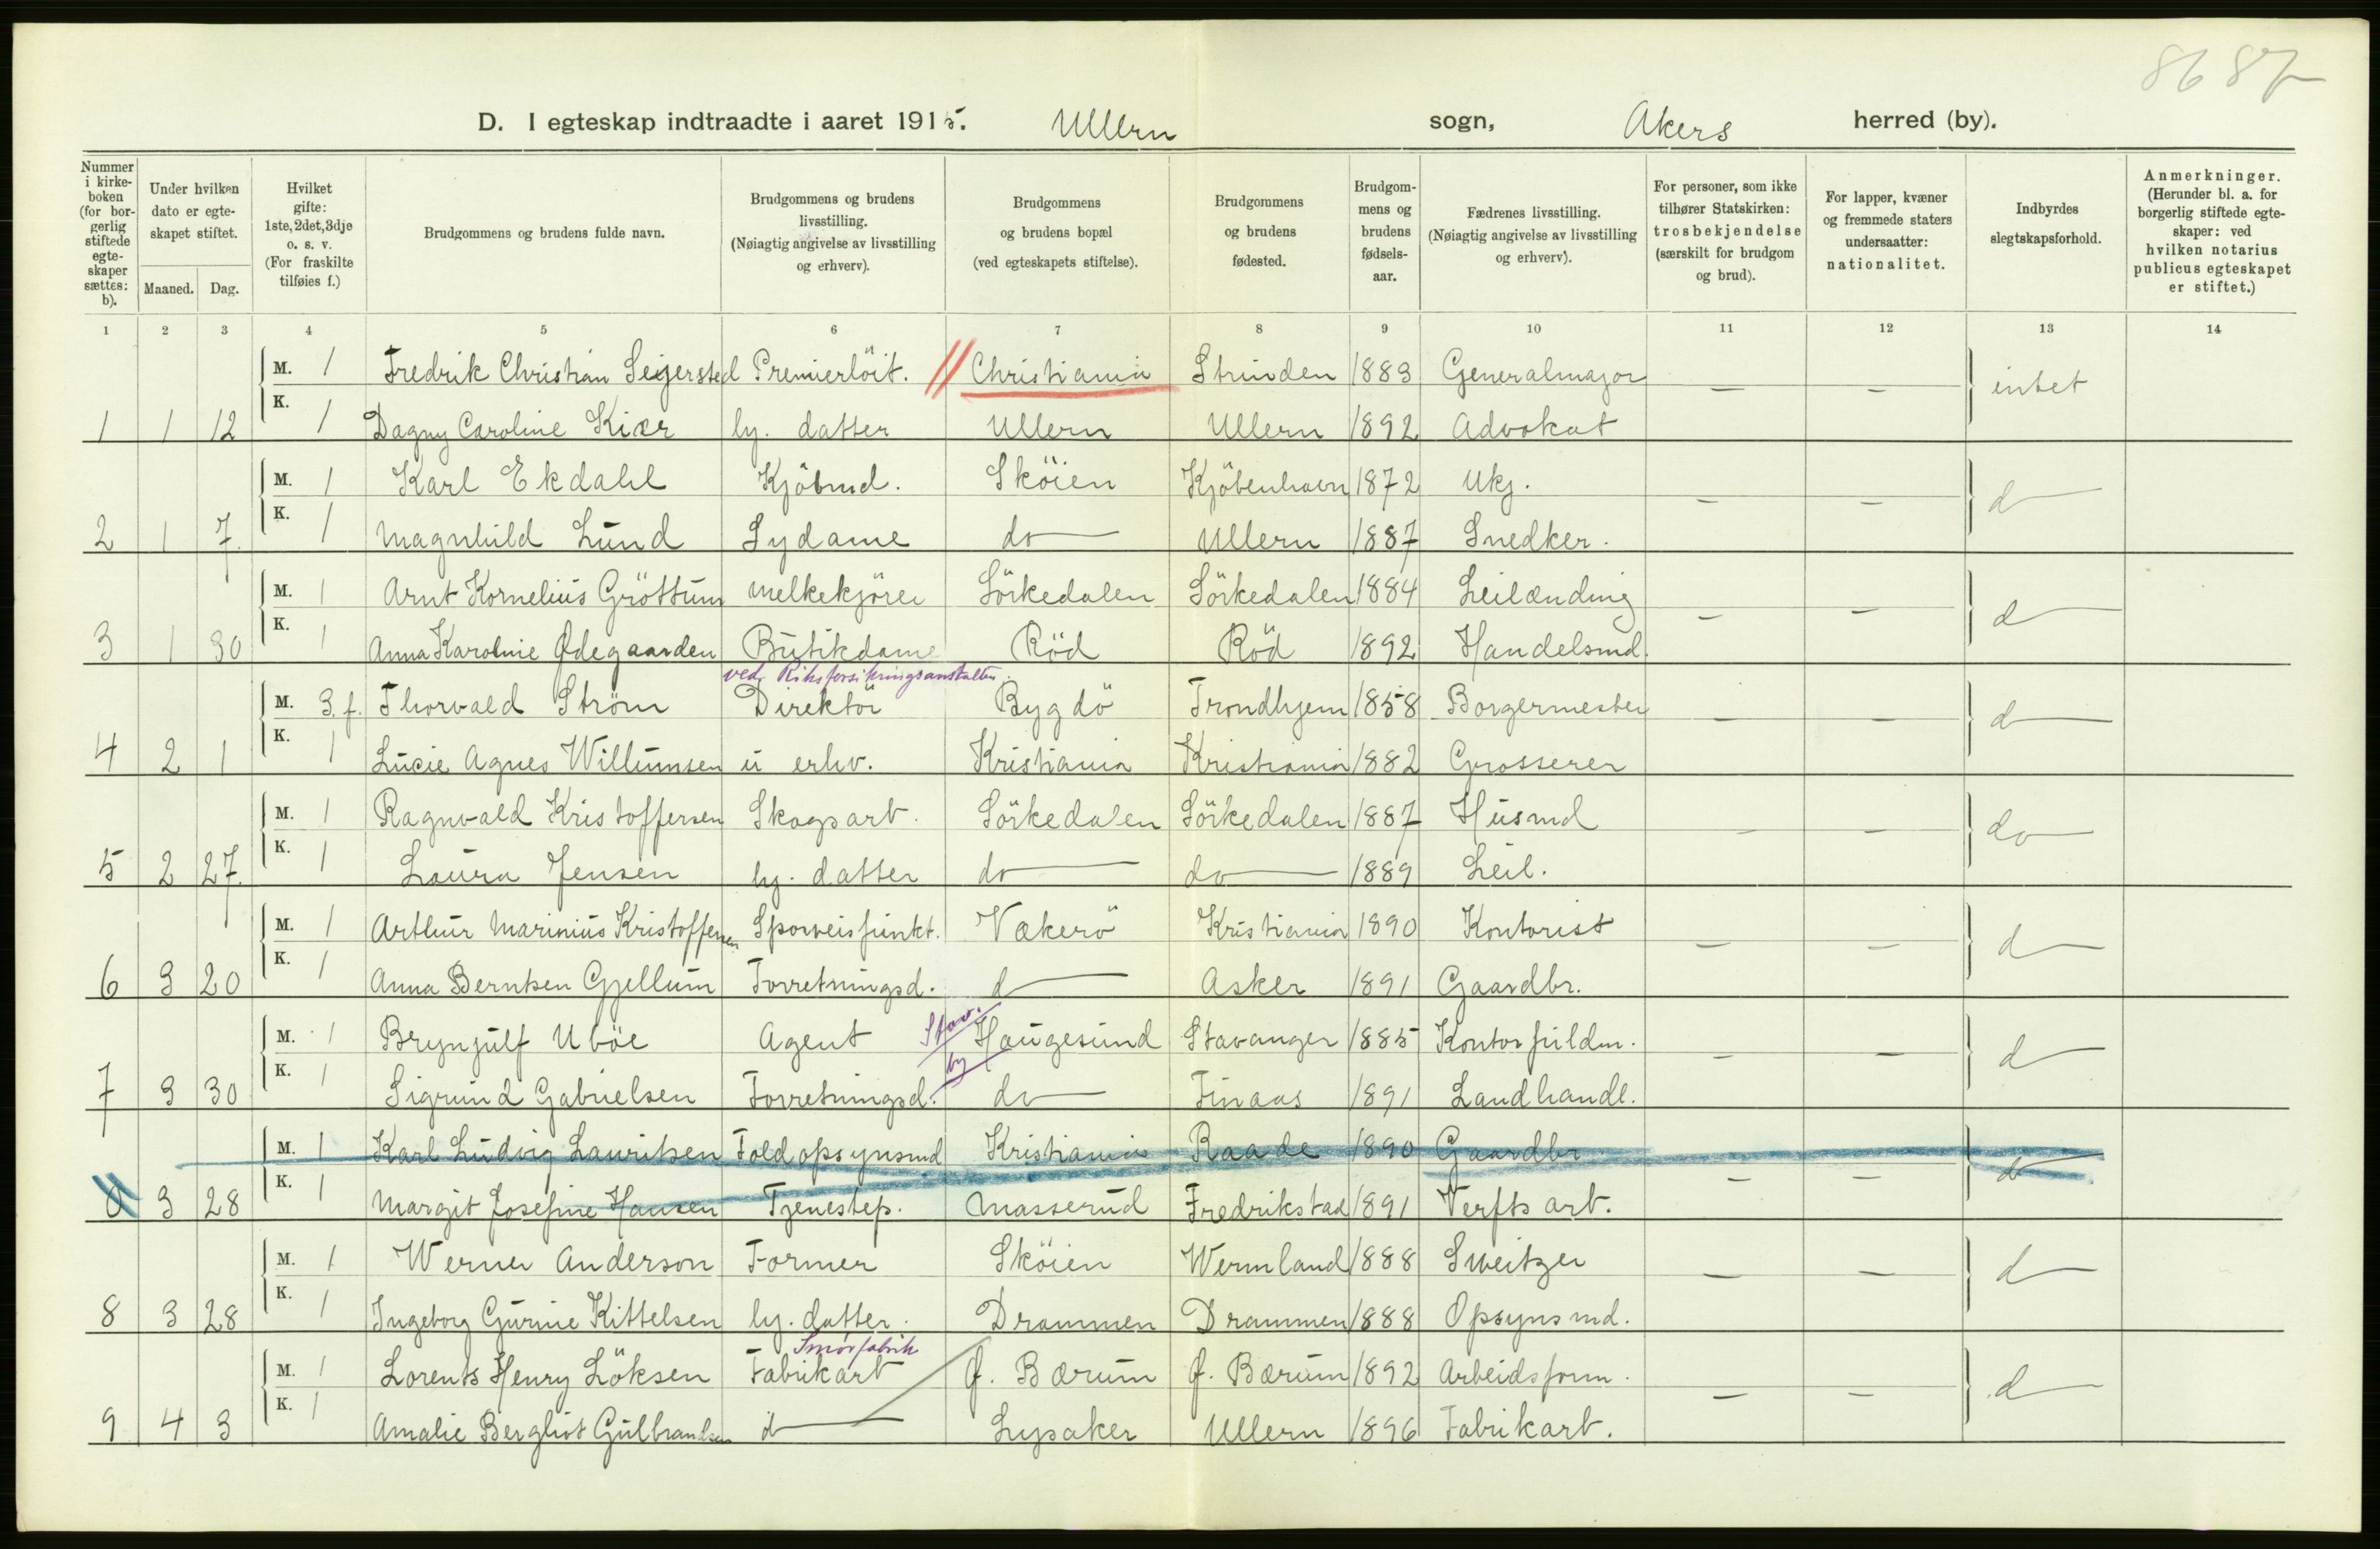 86 87
D. I egteskap indtraadte i aaret 1915. Ullern sogn, Akers herred (by).
Nummer i kirke-boken (for bor-gerlig stiftede egte-skaper sættes: b).
Under hvilken dato er egte-skapet stiftet.
Maaned. Dag.
Hvilket gifte: 1ste, 2det, 3dje o. s. v. (For fraskilte tilføies f.)
Brudgommens og brudens fulde navn.
Brudgommens og brudens livsstilling. (Nøiagtig angivelse av livsstilling og erhverv).
Brudgommens og brudens bopæl (ved egteskapets stiftelse).
Brudgommens og brudens fødested.
Brudgom-mens og brudens fødsels-aar.
Fædrenes livsstilling. (Nøiagtig angivelse av livsstilling og erhverv).
For personer, som ikke tilhører Statskirken: trosbekjendelse (særskilt for brudgom og brud).
For lapper, kvæner og fremmede staters undersaatter: nationalitet.
Indbyrdes slegtskapsforhold.
Anmerkninger. (Herunder bl. a. for borgerlig stiftede egte-skaper: ved hvilken notarius publicus egteskapet er stiftet.)
1 2 3 4 5 6 7 8 9 10 11 12 13 14
M. 1 Fredrik Christian Seijersted Premierlöit. // Christiania Strinden 1883 Generalmajor — — intet
1 1 12 K. 1 Dagny Caroline Kiær hj. datter Ullern Ullern 1892 Advokat
M. 1 Karl Ekdahl Kjöbmd. Sköien Kjöbenhavn 1872 Ukj. — — d
2 1 7. K. 1 Magnhild Lund Sydame do Ullern 1887 Snedker.
M. 1 Arnt Kornelius Gröttum Melkekjörer Sörkedalen Sörkedalen 1884 Leilænding — — d
3 1 30 K. 1 Anna Karoline Ødegaarden Butikdame Röd Röd 1892 Handelsmd.
ved Riksforsikringsanstalten.
M. 3. f. Thorvald Ström Direktör Bygdö Trondhjem 1858 Borgermester — — d
4 2 1 K. 1 Lucie Agnes Willumsen u erhv. Kristiania Kristiania 1882 Grosserer
M. 1 Ragnvald Kristoffersen Skogsarb. Sörkedalen Sörkedalen 1887 Husmd — — do
5 2 27. K. 1 Laura Jensen hj. datter do do 1889 Leil.
M. 1 Arthur Marinius Kristoffersen Sporveisfunkt. Vækerö Kristiania 1890 Kontorist — — d
6 3 20 K. 1 Anna Berntsen Gjellum Forretningsd. d Asker 1891 Gaardbr.
Stav. by
M. 1 Brynjulf Uböe Agent Haugesund Stavanger 1885 Kontorfuldm. — — d
7 3 30 K. 1 Sigrund Gabrielsen Forretningsd. do Finaas 1891 Landhandl.
M. 1 Karl Ludvig Lauritsen Toldopsynsmd Kristiania Raade 1890 Gaardbr — — d
3 28 K. 1 Margit Josefine Hansen Tjenestep. Masserud Fredrikstad 1891 Verfts arb.
M. 1 Werner Anderson Former Sköien Wermland 1888 Sweitzer — — d
8 3 28 K. 1 Ingeborg Gurine Kittelsen hj. datter. Drammen Drammen 1888 Opsynsmd.
Smörfabrik
M. 1 Lorents Henry Löksen Fabrikarb Ø. Bærum Ø. Bærum 1892 Arbeidsform. — — d
9 4 3 K. 1 Amalie Bergliot Gulbrandsen d Lysaker Ullern 1896 Fabrikarb.